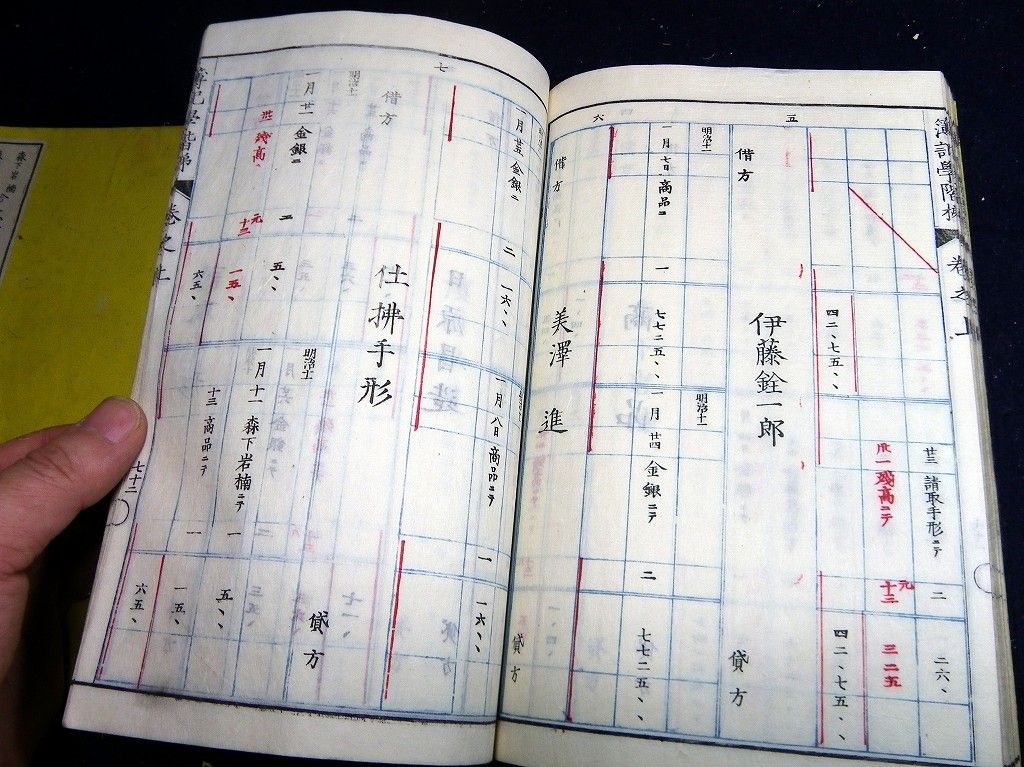 簿記學階梯 巻之上
廿三 請取手形ニテ 二 二六、
卅一 殘高ニテ 元十三 三二五
四二、七五、、 四二、七五、、
五
伊藤銓一郎
借方 貸方
明治十一 明治十一
一月七日 商品ニ 一 七七二五、、 一月廿四 金銀ニテ 二 七七二五、、
六
美澤進
借方 貸方
一月廿五 金銀ニ 二 一六、、 一月八日 商品ニテ 一 一六、、
七
仕拂手形
借方 貸方
明治十一 明治十一
一月廿一 金銀ニ 二 五、、 一月十一 森下岩楠ニテ 一 五、、
卅一 殘高、 元十三 一五、、 十三 商品ニテ 一 一五、、
六五、、 六五、、
簿記學階梯 巻之上 七十二
森下岩楠